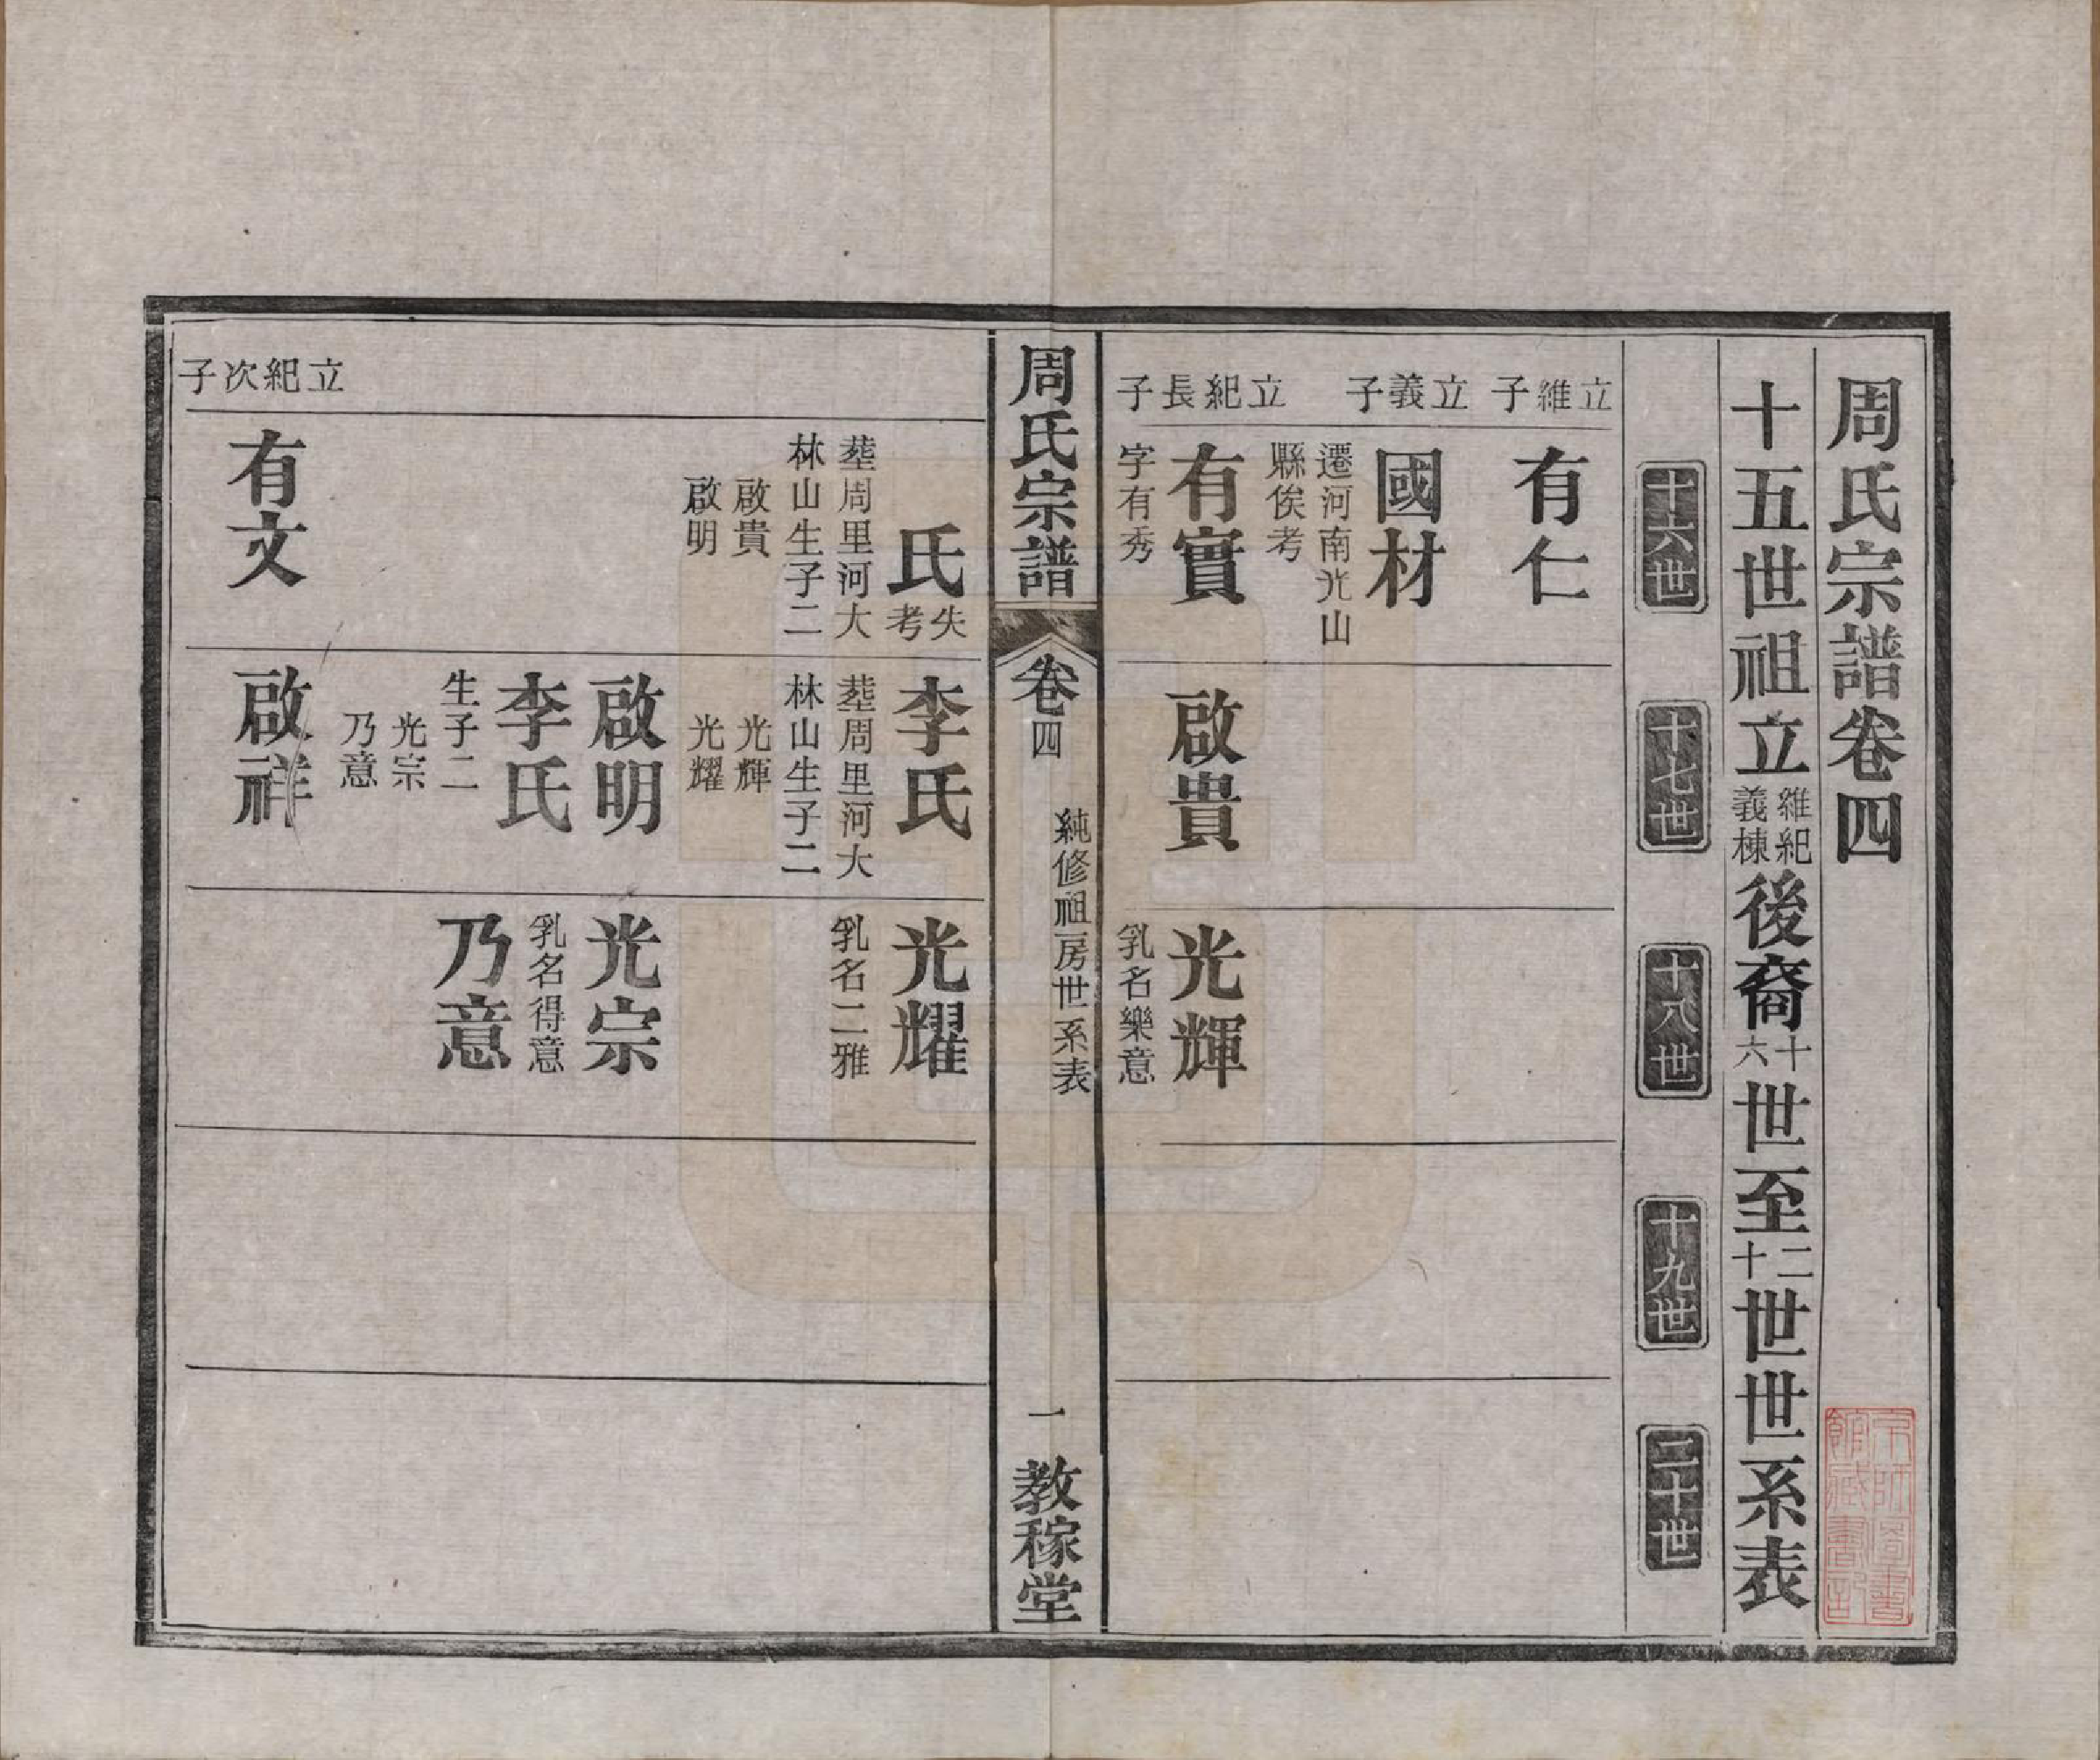 周氏宗譜卷四
十五世祖立維紀義棟後裔十六世至二十世世系表
十六世
十七世
十八世
十九世
二十世
立維子
有仁
立義子
國材
遷河南光山
縣俟考
立紀長子
有實
字有秀
啟貴
光輝
乳名樂意
周氏宗譜
卷四
純修祖房世系表
一
教稼堂
氏失考
塟周里河大
林山生子二
啟貴
啟明
李氏
塟周里河大
林山生子二
光輝
光耀
光耀
乳名二雅
啟明
李氏
生子二
光宗
乃意
光宗
乳名得意
乃意
立紀次子
有文
啟祥